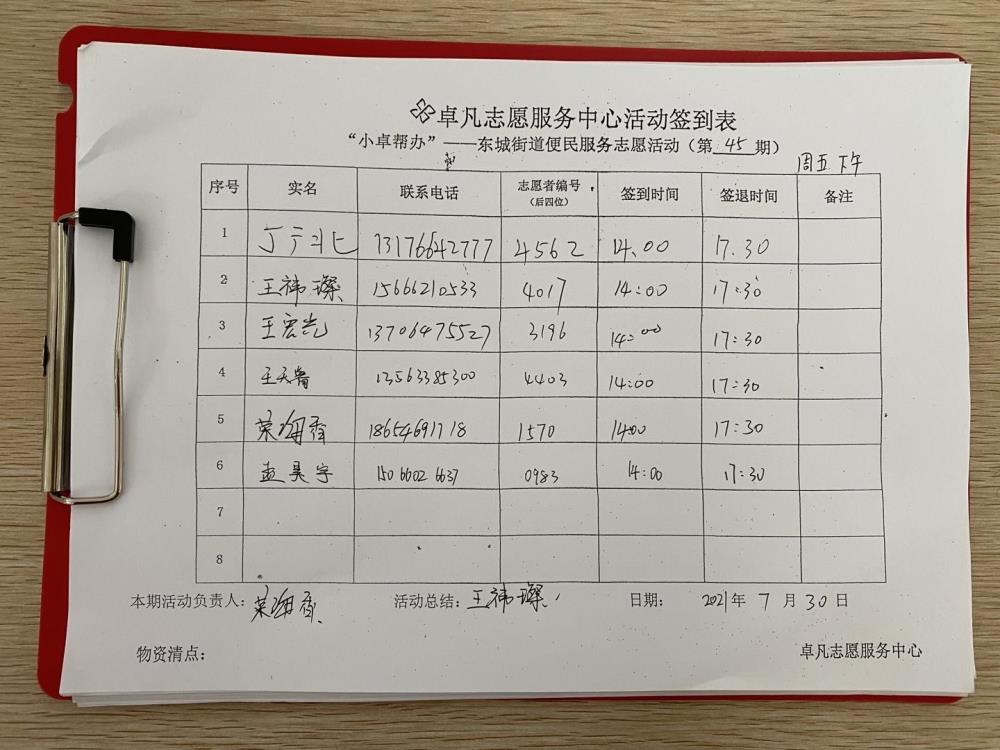 卓凡志愿服务中心活动签到表
“小卓帮办”——东城街道便民服务志愿活动（第 45 期）
周五 下午
序号 实名 联系电话 志愿者编号（后四位） 签到时间 签退时间 备注
1 丁宁斗匕 13176642777 4562 14.00 17.30
2 王祎璨 15666210533 4017 14:00 17:30
3 王宏光 13706475527 3196 14:00 17:30
4 王天鲁 13563385300 4403 14:00 17:30
5 荣海香 18654691718 1570 14:00 17:30
6 孟昊宇 15066026637 0983 14:00 17:30
7
8
本期活动负责人：荣海香 活动总结：王祎璨 日期：2021年 7 月 30 日
物资清点： 卓凡志愿服务中心